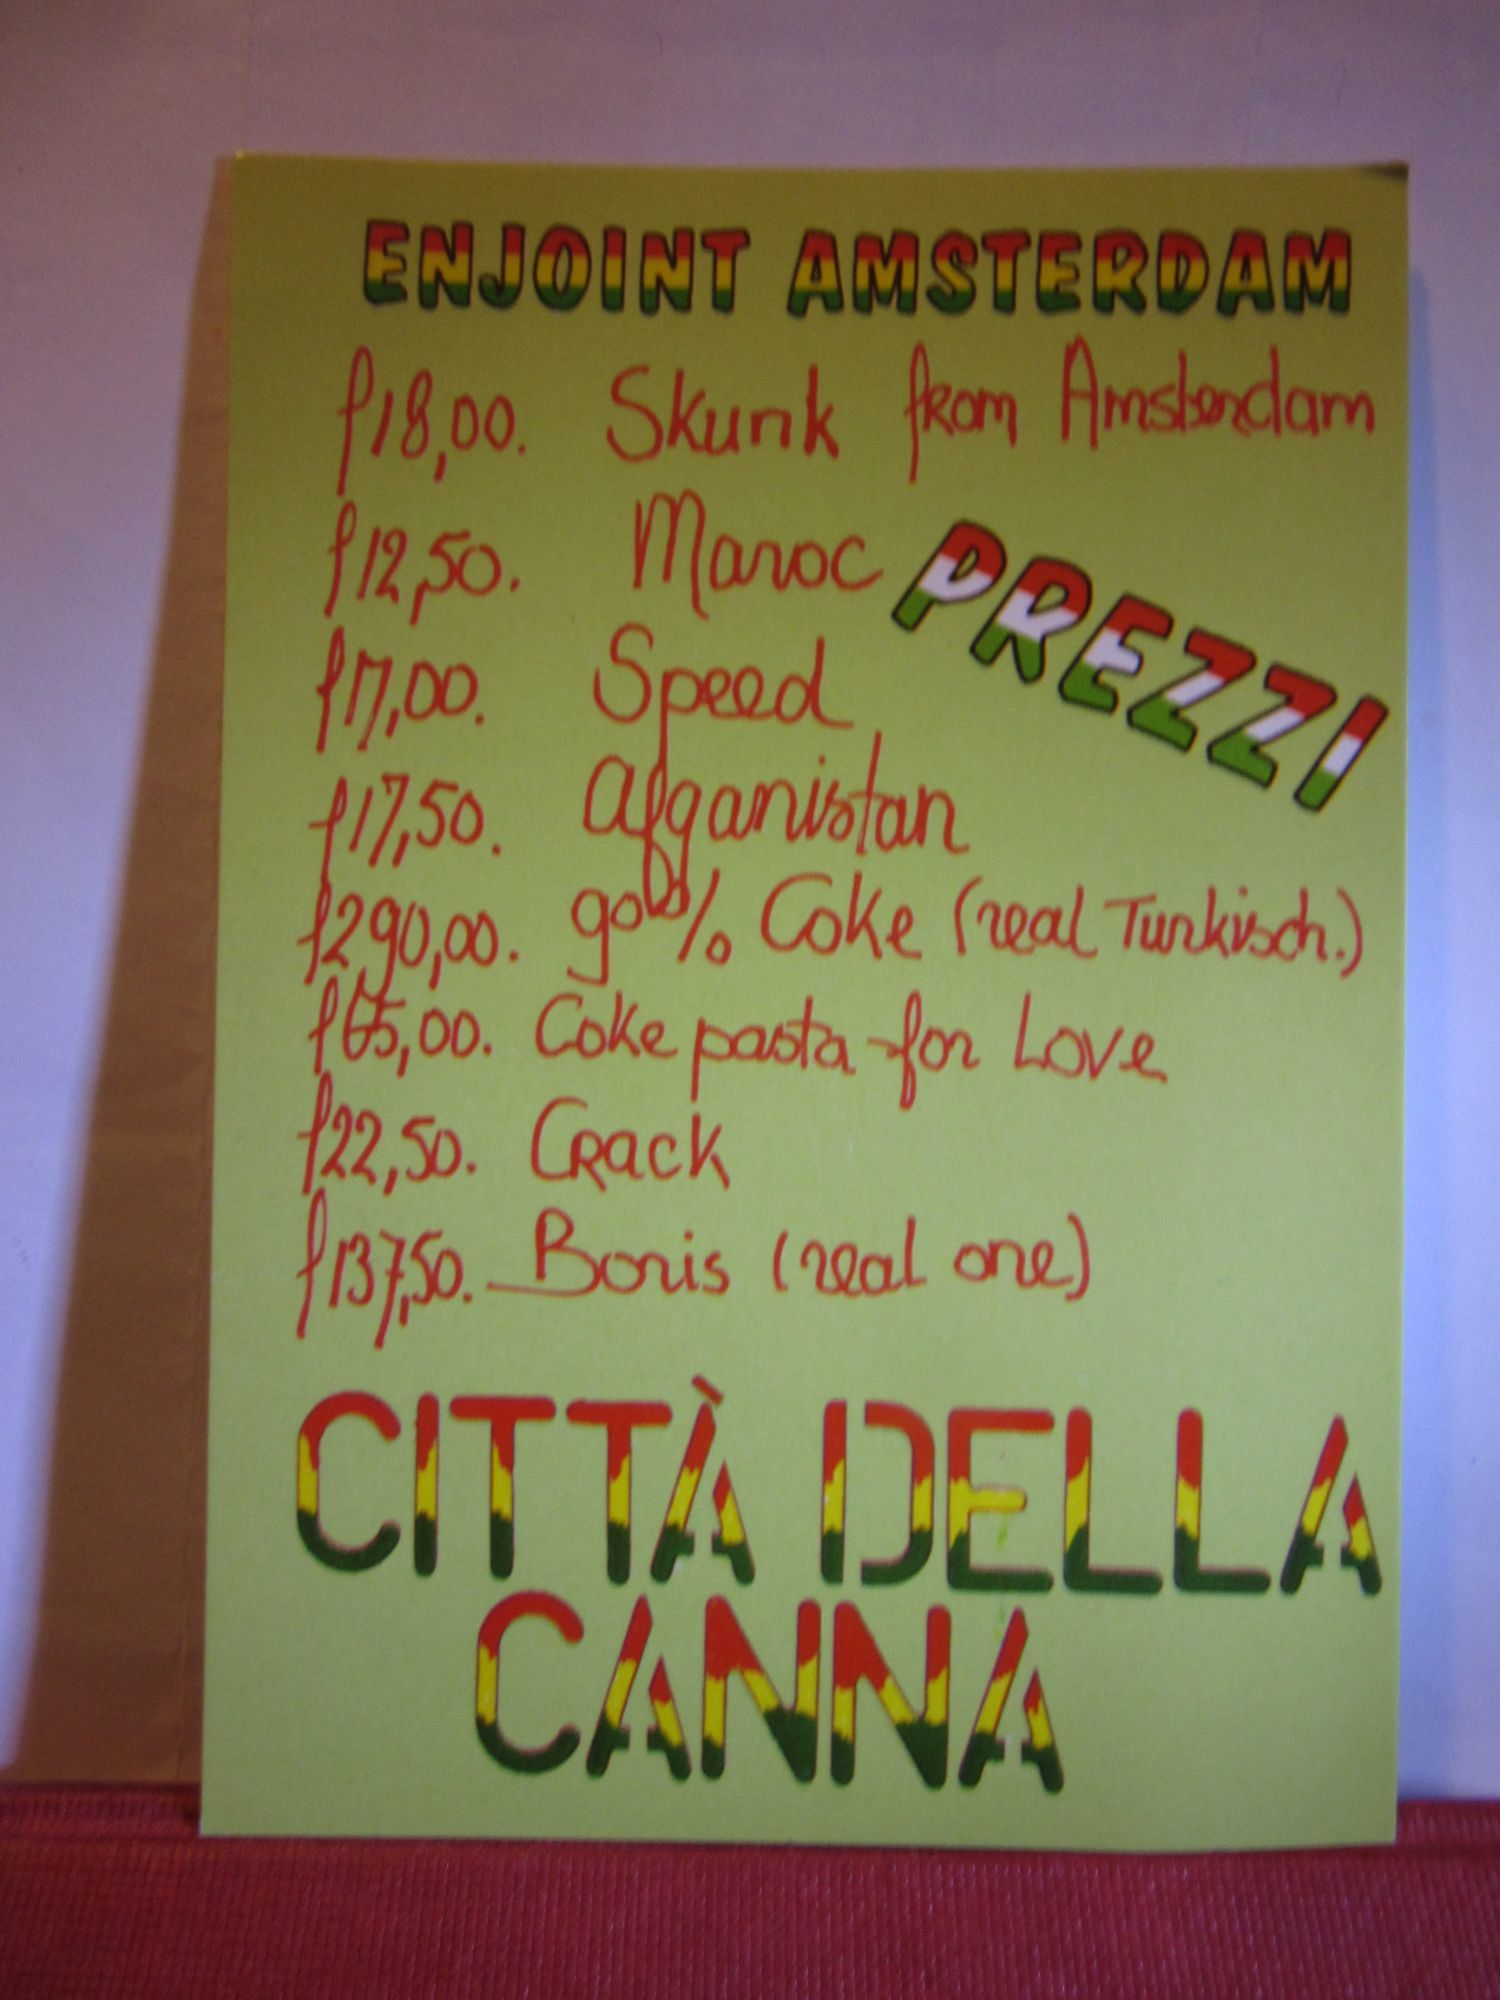 ENJOINT AMSTERDAM
ƒ18,00. Skunk from Amsterdam
ƒ12,50. Maroc
PREZZI
ƒ17,00. Speed
ƒ17,50. Afganistan
ƒ290,00. 90% Coke (real Turkisch.)
ƒ65,00. Coke pasta for Love
ƒ22,50. Crack
ƒ137,50. Boris (real one)
CITTÀ DELLA
CANNA